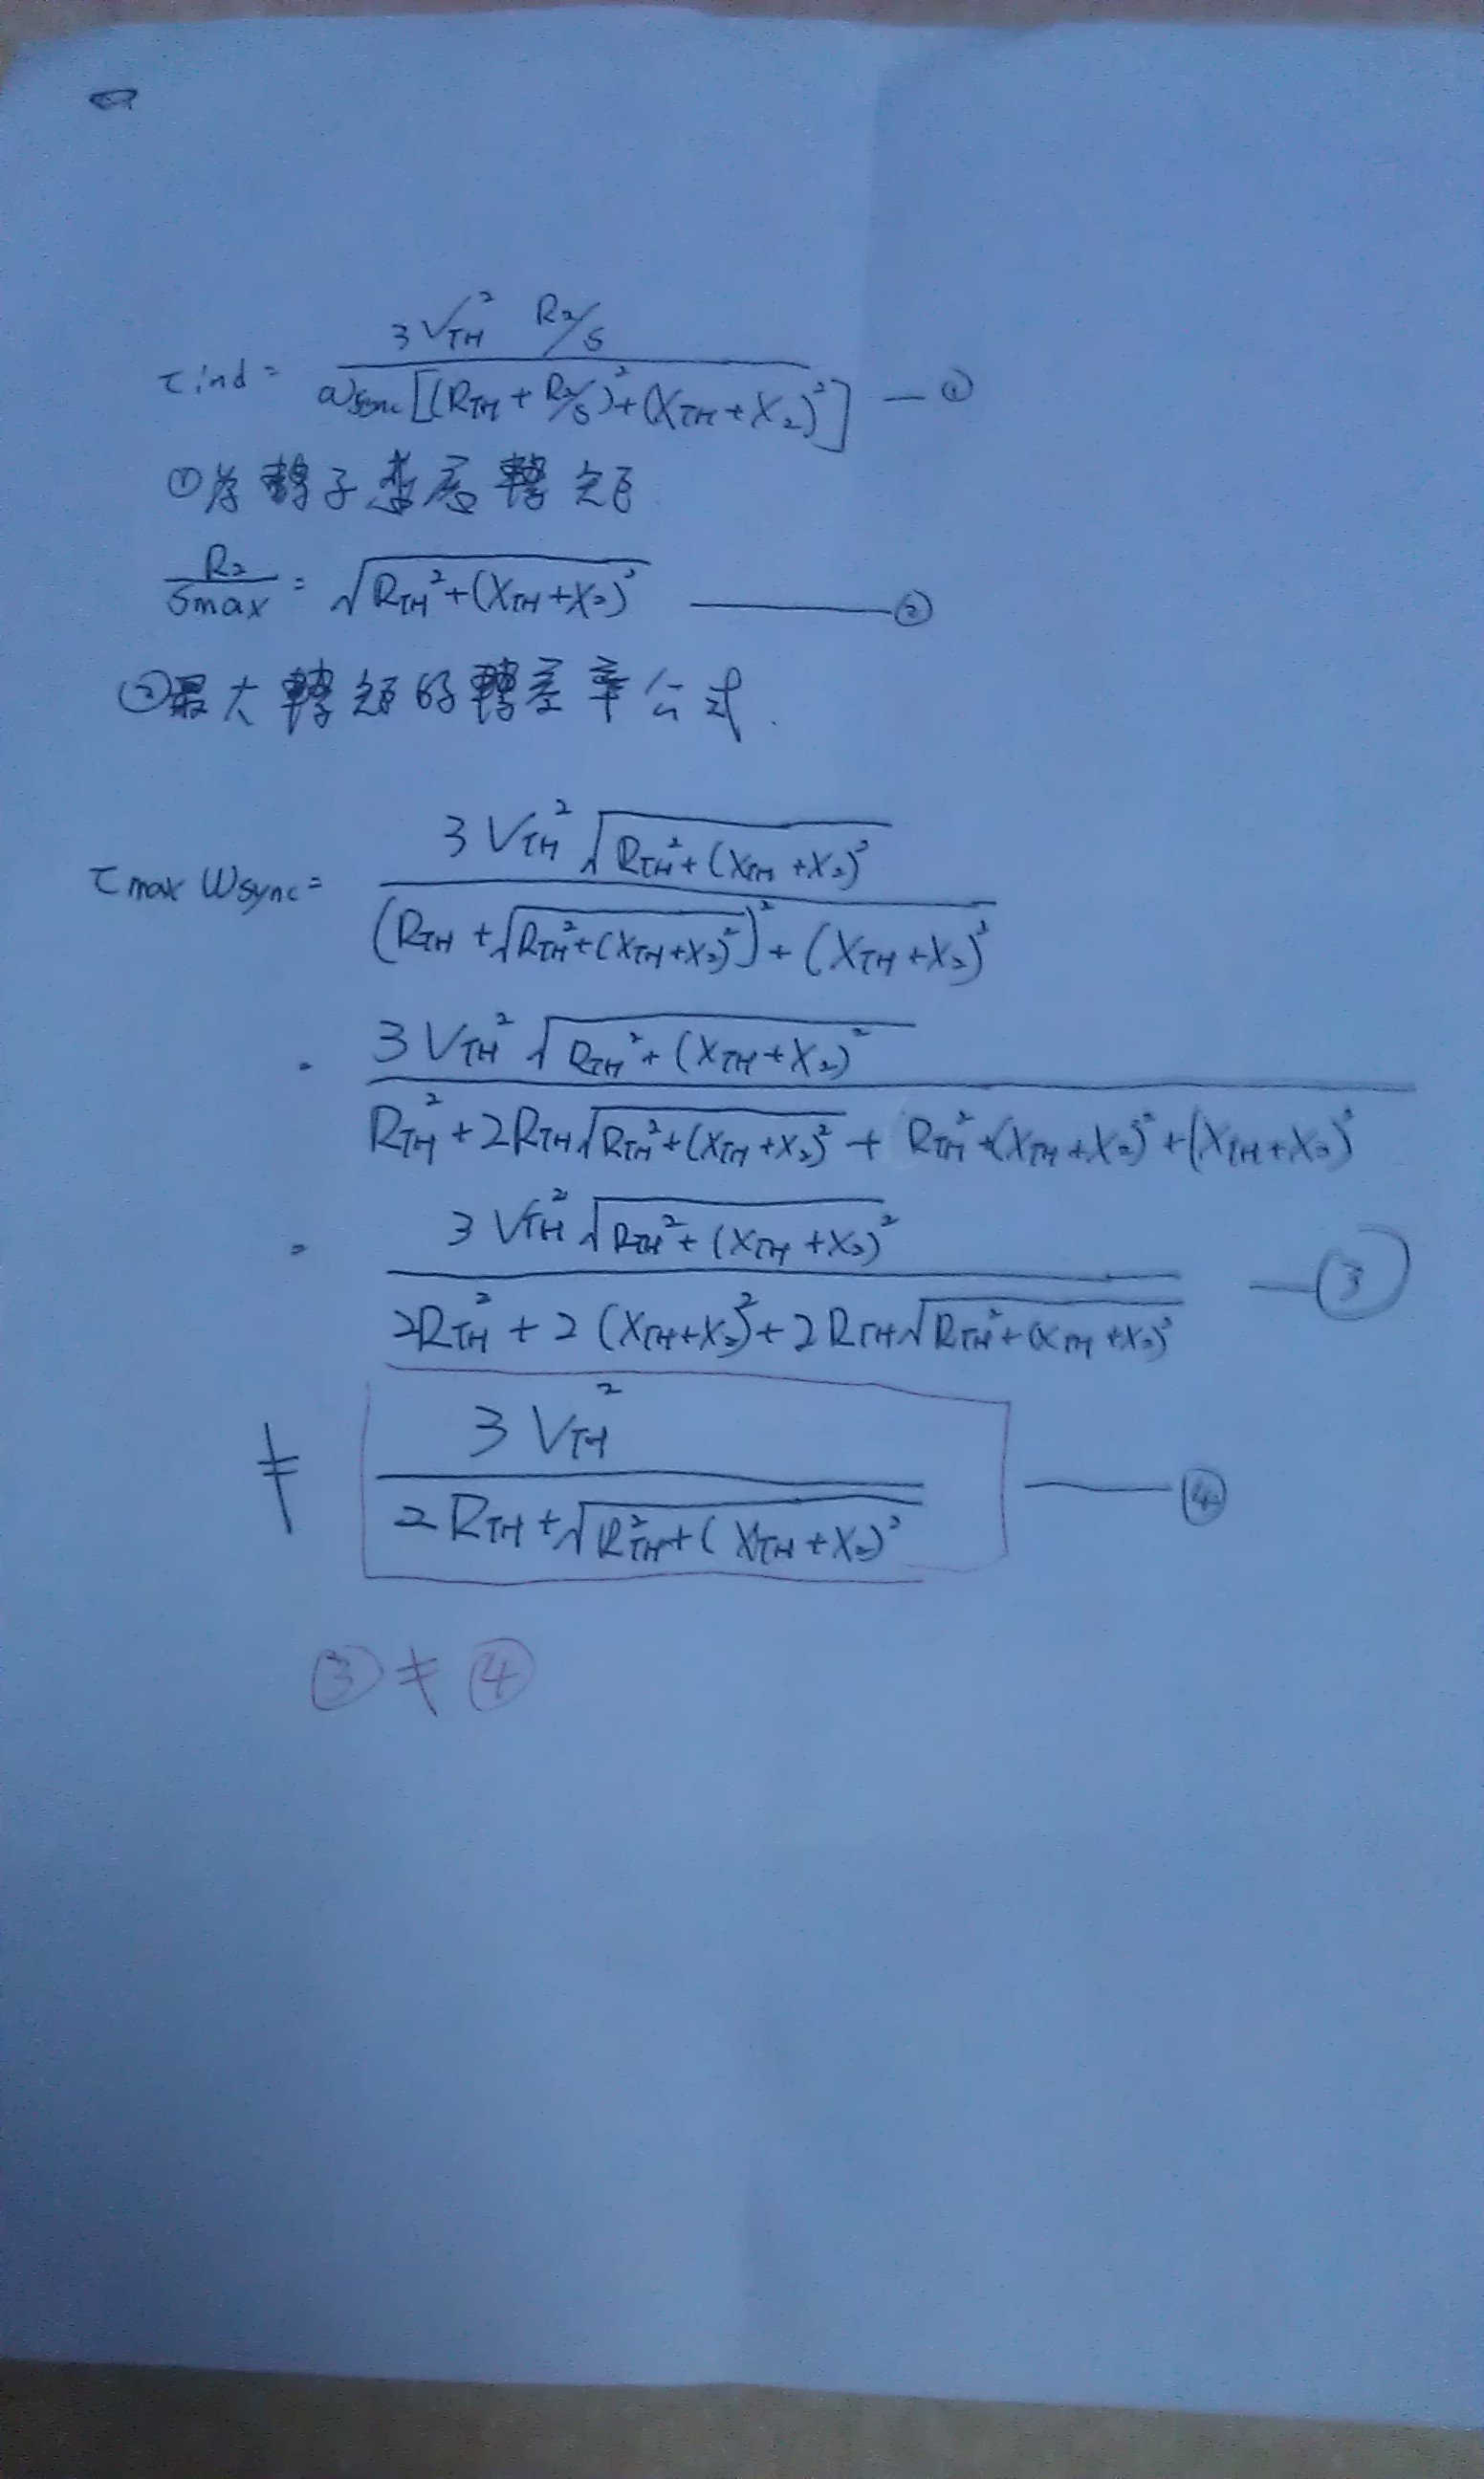 τind = 3V_TH² R₂/s / ωsync[(R_TH + R₂/s)² + (X_TH + X₂)²] — ①
①為轉子感應轉矩
R₂/Smax = √(R_TH² + (X_TH + X₂)²) — ②
②最大轉矩的轉差率公式.
τmax ωsync = 3V_TH² √(R_TH² + (X_TH + X₂)²) / (R_TH + √(R_TH² + (X_TH + X₂)²))² + (X_TH + X₂)²
= 3V_TH² √(R_TH² + (X_TH + X₂)²) / R_TH² + 2R_TH√(R_TH² + (X_TH + X₂)²) + R_TH² + (X_TH + X₂)² + (X_TH + X₂)²
= 3V_TH² √(R_TH² + (X_TH + X₂)²) / 2R_TH² + 2(X_TH + X₂)² + 2R_TH√(R_TH² + (X_TH + X₂)²) — ③
≠ 3V_TH² / 2R_TH + √(R_TH² + (X_TH + X₂)²) — ④
③ ≠ ④